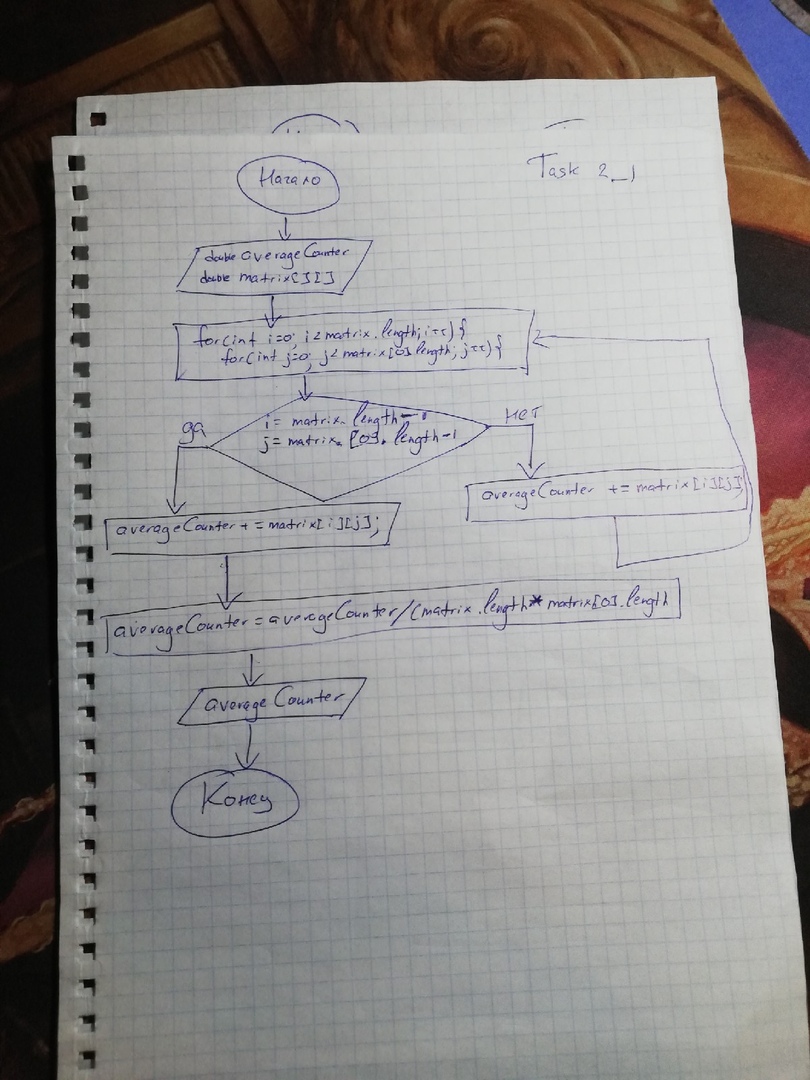 Task 2_1
Начало
double averageCounter
double matrix[][]
for(int i=0; i<matrix.length; i++){
for(int j=0; j<matrix[0]length; j++){
да
нет
i= matrix. length-1
j= matrix. [0]. length-1
averageCounter += matrix[i][j]
averageCounter += matrix[i][j];
averageCounter = averageCounter/(matrix.length* matrix[0].length
averageCounter
Конец